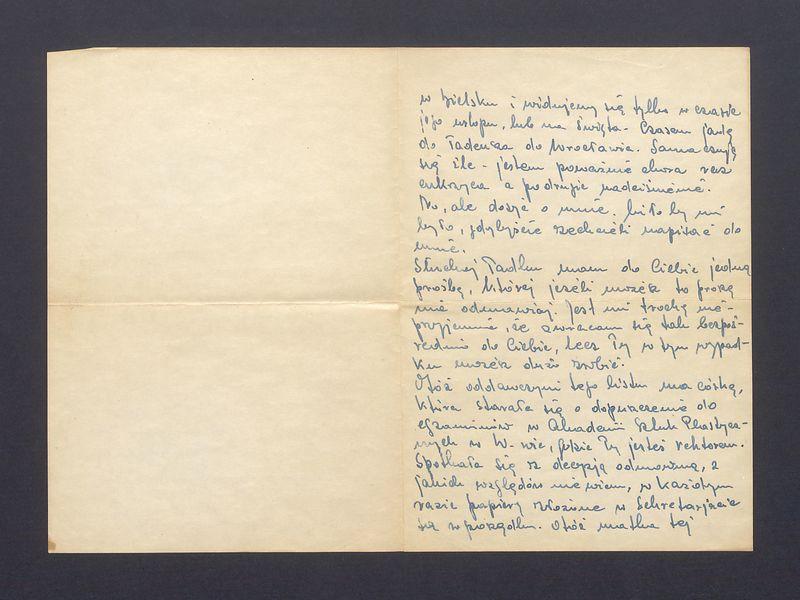 w Bielsku i widujemy się tylko w czasie
jego urlopu, lub na Święta. Czasem jadę
do Tadeusza do Wrocławia. Sama czuję
się źle - jestem poważnie chora raz
cukrzyca a po drugie nadciśnienie.
No, ale dosyć o mnie. Miło by mi
było, gdybyście zechcieli napisać do
mnie.
Słuchaj Tadku mam do Ciebie jedną
prośbę, której jeżeli możesz to proszę
nie odmawiaj. Jest mi trochę nie-
przyjemnie, że zwracam się tak bezpoś-
rednio do Ciebie, lecz Ty w tym wypad-
ku możesz dużo zrobić.
Otóż oddawczyni tego listu ma córkę,
która starała się o dopuszczenie do
egzaminów w Akademii Sztuk Plastycz-
nych w W-wie, gdzie Ty jesteś rektorem.
Spotkała się z decyzją odmowną, z
jakich względów nie wiem, w każdym
razie papiery złożone w Sekretarjacie
są w porządku. Otóż matka tej